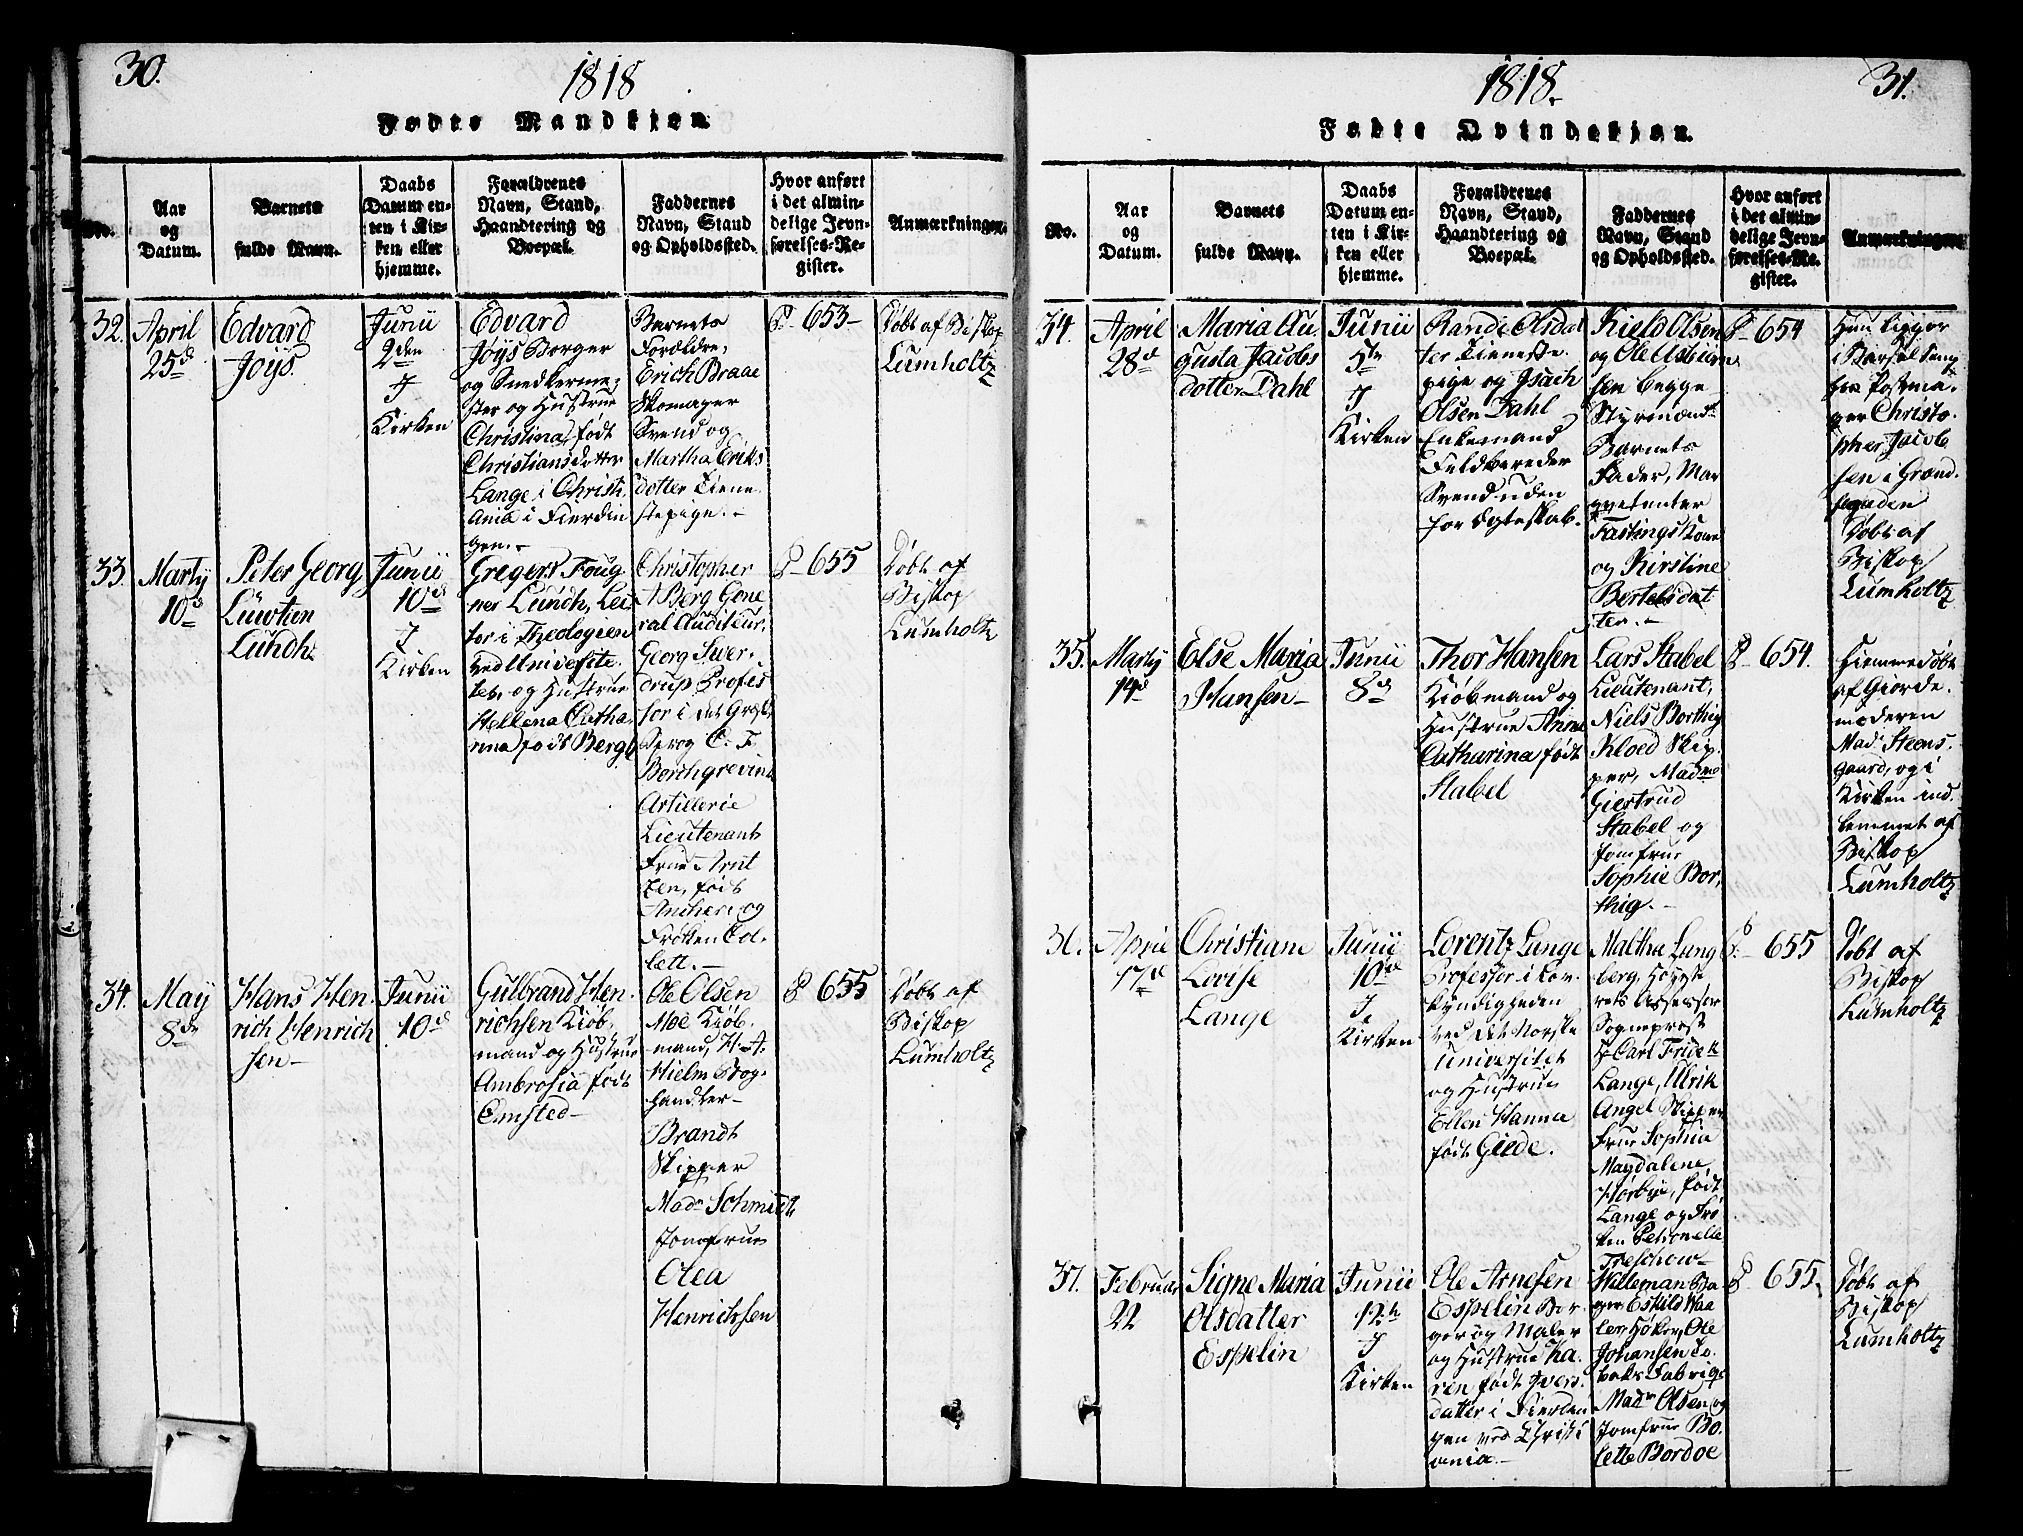 30.
1818
Fødte Mandkjøn
No.
Aar
og
Datum.
Barnets
fulde Navn.
Daabs
Datum en-
ten i Kir-
ken eller
hjemme.
Forældrenes
Navn, Stand,
Haandtering og
Boepæl.
Faddernes
Navn, Stand
og Opholdssted.
Hvor anført
i det almin-
delige Jevn-
førelses-Re-
gister.
Anmærkninger.
32.
April
25de
Edvard
Jøÿs
Junii
2den
I
Kirken
Edvard
Jøÿs Borger
og Snedkerme-
ster og Hustrue
Christina, født
Christiansdotter
Lange i Christi
ania i Fierdin
gen.
Barnets
Forældre,
Erich Braae
Skomager
Svend og
Martha Eriks
dotter Tiene
stepige.
P. 653
Døbt af Biskop
Lumholtz
33.
Martÿ
10d
Peter Georg
Lundh.
Junii
10de
I
Kirken
Gregers Foug
ner Lundh, Lec
tor i Theologien
ved Universite
tet, og Hustrue
Hellena Catha
rina født Bergh
Christopher
A Berg Gene
ral Auditeur,
Georg Swer
drup Profes
sor i det Græske
Sprog C. F.
Borchgrevink
Artillerie
Lieutenant
Frue Arnt
zen, født
Ancher, og
Frøken Col-
lett.
P. 655
Døbt af
Biskop
Lumholtz
34.
May
8de
Hans Hen-
rich Henrich
sen
Junii
10de
Gulbrand Hen-
richsen Kiøb-
mand og Hustrue
Ambrosia født
Emsted
Ole Olsen
Moe Kiøb-
mand, H. A.
Hielm Bog-
handler
Brandt
Skipper
Mad. Schmidt
Jomfrue
Olea
Henrichsen
P 655
Døbt af
Biskop
Lumholtz
1818.
31.
Fødte Qvindekjøn.
No.
Aar
og
Datum.
Barnets
fulde Navn.
Daabs
Datum en-
ten i Kir-
ken eller
hjemme.
Forældrenes
Navn, Stand,
Haandtering og
Boepæl.
Faddernes
Navn, Stand
og Opholdssted.
Hvor anført
i det almin-
delige Jevn-
førelses-Re-
gister.
Anmærkninger.
34.
April
28de
Maria Au
gusta Jacobs
dotter Dahl
Junii
5te
I
Kirken
Randi Olsdat
ter Tieneste
pige og Isach
Olsen Dahl
Enkemand
Feldbereder
Svend uden
for Egteskab.
Kield Olsen
og Ole Asbiørn
sen begge
Styrmænd
Barnets
Fader, Mar
qvetenter
Fastings Kone
og Kirstine
Bertelsdat
ter.
P. 654
Hun ligger
i Barselseng
hos Postma-
ger Christo-
pher Jacob
sen i Grænd-
segaden
Døbt af
Biskop
Lumholtz
35.
Martÿ
14d
Else Maria
Hansen
Junii
8de
Thor Hansen
Kiøbmand og
Hustrue Anne
Catharina født
Stabel
Lars Stabel
Lieutenant,
Niels Borthig
Kloed Skip-
per, Madme
Giertrud
Stabel og
Jomfrue
Sophie Bor-
thig.
P. 654.
Hiemmedøbt
af Giorde-
moderen
Mad. Steens-
gaard, og i
Kirken ind-
lemmet af
Biskop
Lumholtz
36.
April
17de
Christiane
Lovise
Lange
Junii
10de
I
Kirken
Lorentz Lange
Professor i Lov
kyndigheden
ved det Norske
Universitet
og Hustrue
Ellen Hanna
født Giede.
Malthe Lang
berg Høyste
rets Assessor
Sogneprest
Hr Carl Fridek
Lange, Ulrik
Angel Skipper
Frue Sophia
Magdalene
født
Lange og Frø
ken Petronelle
Treschow
P. 655
Døbt af
Biskop
Lumholtz
37.
Februar
22
Signe Maria
Olsdatter
Espelin
Junii
12te
I
Kirken
Ole Arnesen
Espelin Bor-
ger og Maler
og Hustrue Ka-
ren født Ivers-
datter i Fierdin
gen ved Christi
ania.
Willeman Ba
ger Eskild Waa
ler Høker, Ole
Johansen To-
baks Fabriqe
Madm Olsen og
Jomfrue Bo-
lette Bordoe
P 655
Døbt af
Biskop
Lumholtz